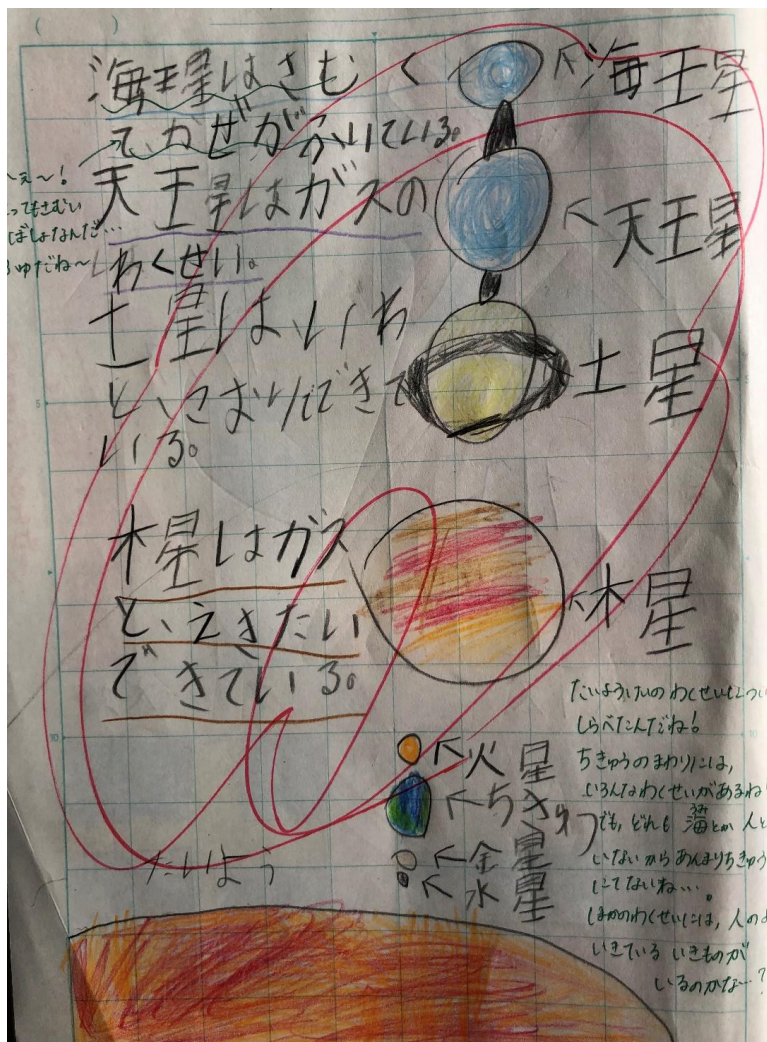 (　)
海王星はさむく
てかぜがふいている。
天王星はガスの
わくせい。
土星はいわ
とこおりでできて
いる。
木星はガス
とえきたい
でできている。
海王星
天王星
土星
木星
火星
ちきゅう
金星
水星
たいよう
ぇ〜!
ってもさむい
ばしょなんだ…
ゅだね〜
たいようけいのわくせいについ
しらべたんだね!
ちきゅうのまわりには、
いろんなわくせいがあるね
でも、どれも海とか人と
うみ
いないからあんまりちきゅう
にてないね…。
ほかのわくせいには、人のよ
いきているいきものが
いるのかな…?